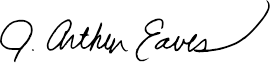 J. Arthur Eaves